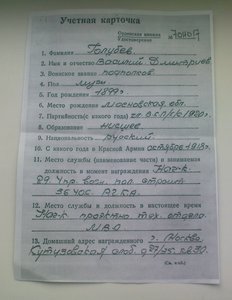 Учетная карточка
Орденская книжка
Удостоверение №
1. Фамилия Голубев
2. Имя и отчество Василий Дмитриев
3. Воинское звание подполков
4. Пол муж
5. Год рождения 1899 г.
6. Место рождения Московская обл.
7. Партийность(с какого года) чл. ВКП/б/с 1920 г.
8. Образование низшее
9. Национальность русский
10. С какого года в Красной Армии октябрь 1918 г.
11. Место службы (наименование части) и занимаемая
должность в момент награждения Нач-к
пол. строит.
12. Место службы и должность в настоящее время
Нач-к тех. отдела
13. Домашний адрес награжденного г. Москва
Кутузовская слоб. д.